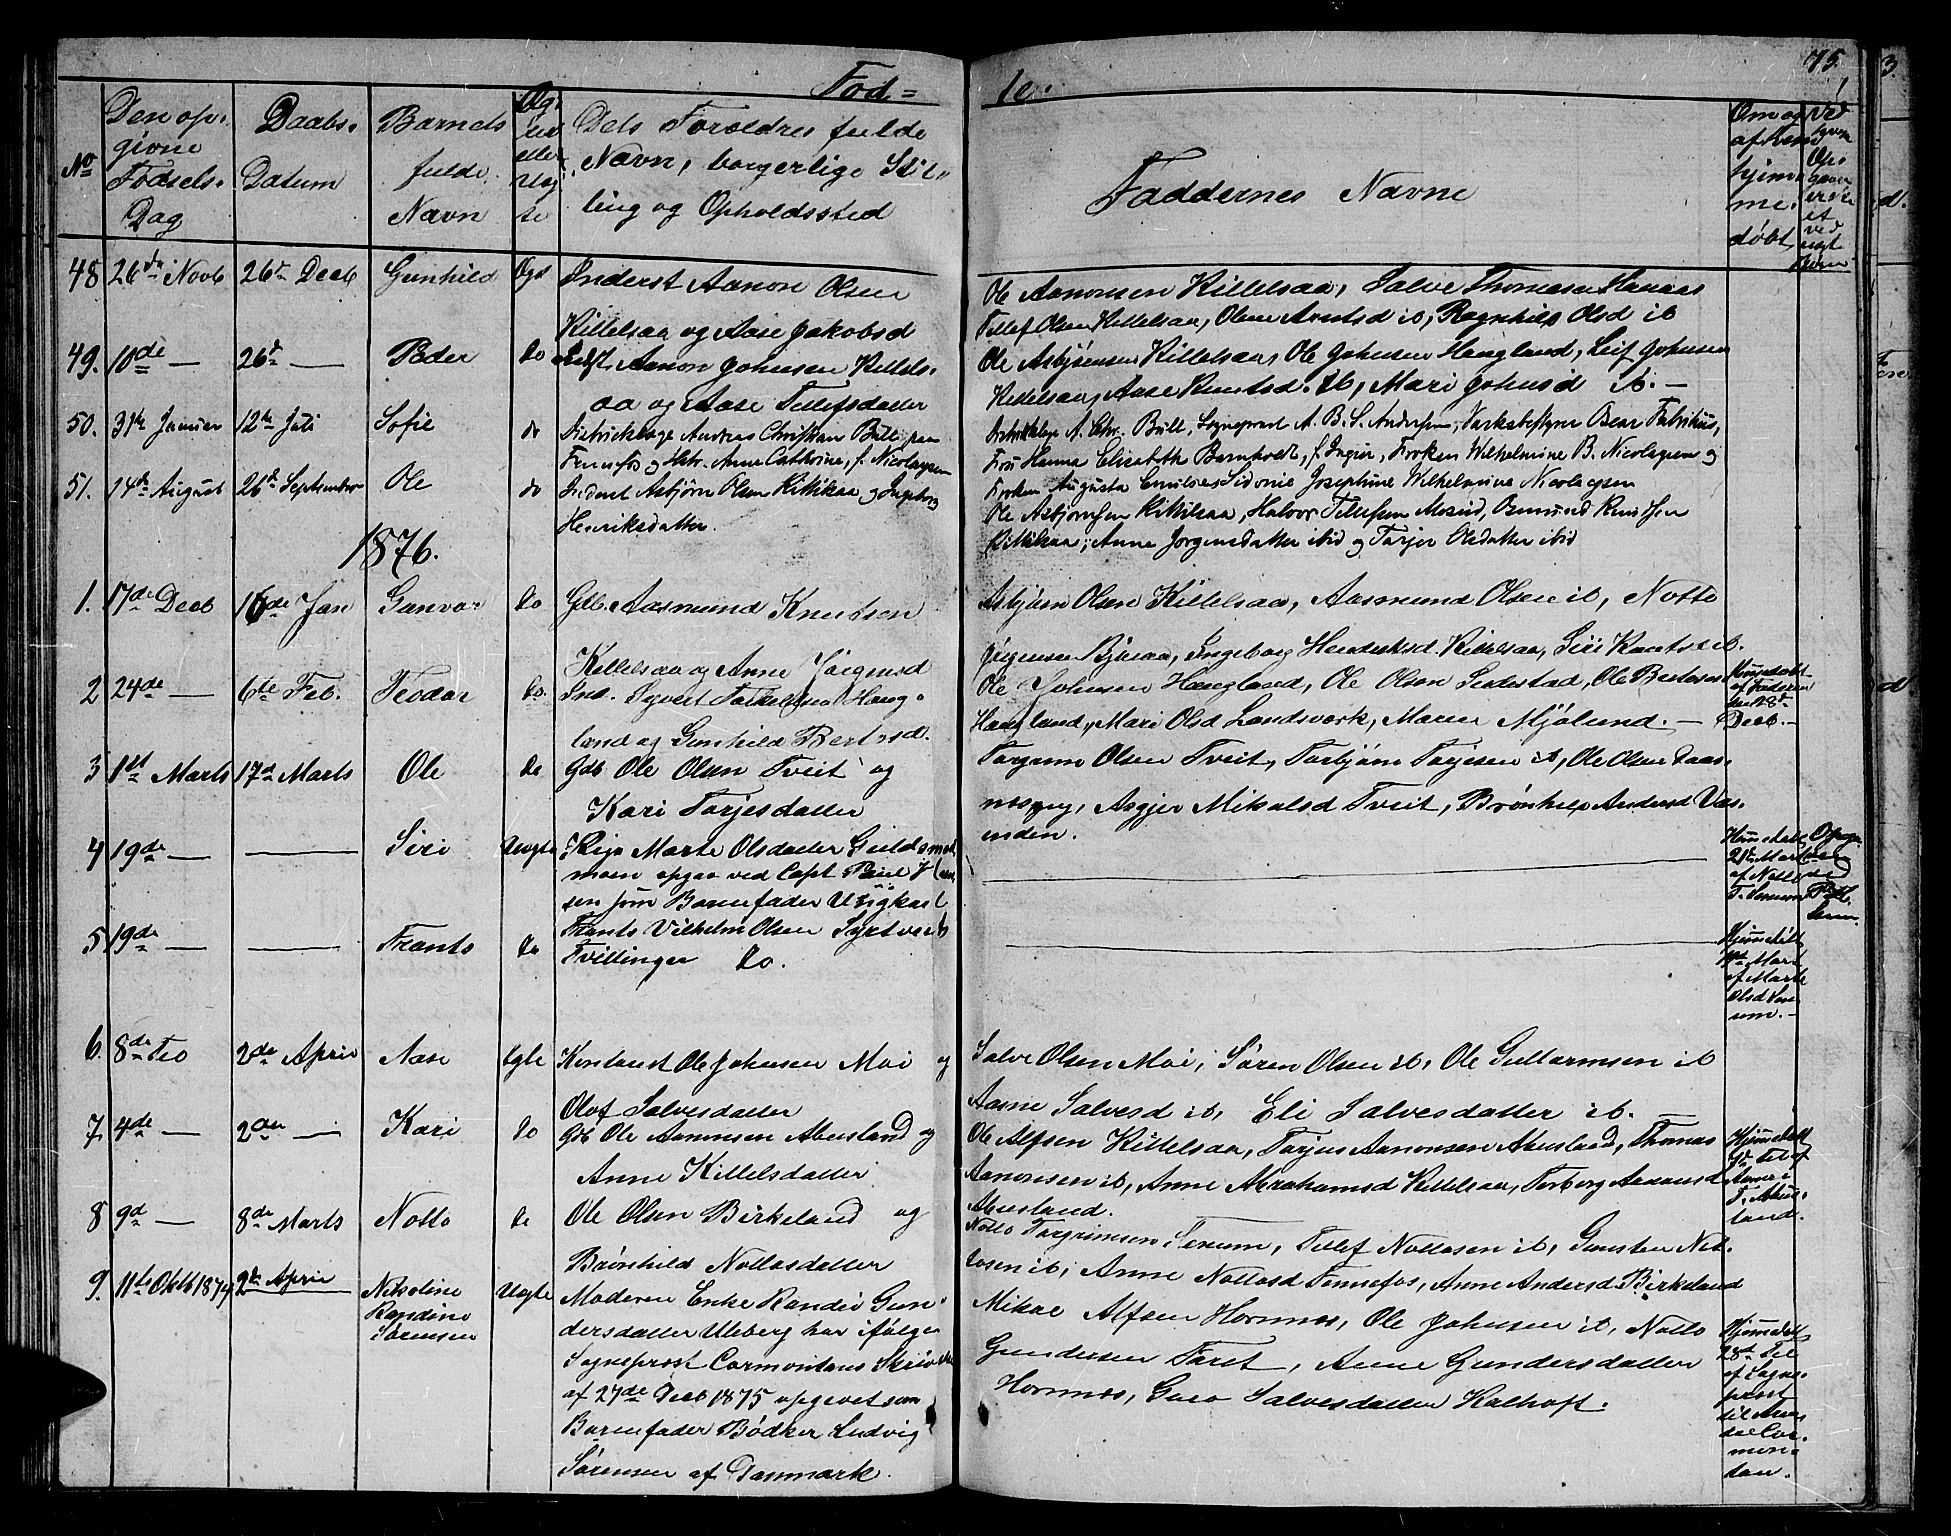 75.
Fød= te.
No
Den op-
givne
Fødsels-
Dag
Daabs-
Datum
Barnets
fulde
Navn
Æg-
te
eller
Uæg
te
Dets Foreldres fulde
Navn, borgerlige Stil-
ling og Opholdssted
Faddernes Navne
Om og
af hvem
hjem-
me-
døbt
48 26de Novb 26de Decb Gunhild Ægt Inderst Aanon Olsen
Kittelsaa og Aase Jakobsd
Ole Aanonsen Kittelsaa, Salve Thomasen
Tellef Olsen Kittelsaa, Olene ib, Ragnhild Olsd ib
49. 10de — 26d — Peder do Aanon Johnsen Kittels-
aa og Aase Tellefsdatter
Ole Asbjørnsen Kittelsaa, Ole Johnsen Haugland, Leif Johnsen
Kittelsaa, Aase Knutsd. ib, Mari Johnsd ib. —
50. 31te Januar 12te Juli Sofie do Distriktslæge Andreas Christian Bull paa
Fennefos og Hstr. Anne Cathrine, f. Nicolaysen
Distriktslæge A. Chr. Bull, Sogneprest A. B. S. Andersen, Værksbestyrer Oscar Fabritius,
Fru Hanna Elisabeth Bernhoft, f. Ingier, Frøken Wilhelmine B. Nicolaysen og
Frøken Augusta Emilse Sidonie Josephine Wilhelmine Nicolaysen
51. 14de August 26de September Ole do Inderst Asbjørn Olsen Kittilsaa og Ingeborg
Henriksdatter.
Ole Asbjørnsen Kittilsaa, Halvor Tellefsen Mosind, Osmund Knudsen
Kittilsaa, Anne Jørgensdatter ibid og Tarjer Olsdatter ibid
1876.
1. 17de Decb 16de Jan Gunvor do Gdb. Aasmund Knutsen
Kittelsaa og Anne Jørgensd
Asbjørn Olsen Kittelsaa, Aasmund Olsen ib, Notto
Jørgensen Bjoraa, Ingeborg Henriksd Kittelsaa, Siri Knutsd ib.
2 24de — 6te Feb. Teodor do. Ind. Syvert Haug-
land og Gunhild Bertesd.
Ole Johnsen Haugland, Ole Olsen Sedestad, Ole Bertesen
Haugland, Mari Olsd Landsverk, Maren Mjølund. —
Hjemdøbt
af Faderen
den 28d
Decb. —
3 1st Marts 17d Marts Ole do Gdb Ole Olsen Tveit og
Kari Tarjesdatter
Targrim Olsen Tveit, Torbjørn Tarjesen ib, Ole Olsen
Asgjer Mikalsd Tveit, Brønhild Andersd Væ-
enden.
4 19de — — Siri Uægte Pige Marte Olsdatter
moen opgav ved Capt
sen som Barnefader
Hjemdøbt
21d Mart
af Notto
T. Senum
5 19de — — Frants do Frants Vilhelm Olsen
Tvillinger do.
Hjemdøbt
Mart
af Marte
Olsd Sen-
um. —
6. 8de Feb 2de April Aase Ægte Kontorist Ole Johnsen Moi og
Olof Salvesdatter
Salve Olsen Moi, Søren Olsen ib, Ole Guttormsen ib
Aasne Salvesd ib, Eli Salvesdatter ib.
7. 4de — 2den — Kari do Gdb Ole Aanonsen Abusland og
Anne Kittelsdatter
Ole Alfsen Kittelsaa, Tarjus Aanonsen Abusland, Thomas
Aanonsen ib, Anne Abrahamsd Kittelsaa, Torborg Aanonsd
Abusland.
Hjemdøbt
9d Feb af
T. Abus-
land.
8 9d — 8de Marts Notto do Ole Olsen Birkeland og
Brønhild Nottosdatter
Notto Targrimsen Senum, Tellef Nottosen ib, Gunsten Not-
tosen ib, Anne Nottosd Fennefos, Anne Andersd Birkeland
9. 11te Oktb 1874 2de April Nikoline
Randine
Sørensen
Uægte Moderen Enke Randi Gun-
dersdatter Uleberg har ifølge
Sogneprest Cormontans Skrivelse
af 27de Decb 1875 opgivet som
Barnefader Bødker Ludvig
Sørensen af Danmark.
Mikal Alfsen Hornnes, Ole Johnsen ib, Notto
Gundersen Faret, Anne Gundersdatter
Hornnes, Guro Salvesdatter Kalhoft.
Hjemdøbt
28d Feb
af Sogne-
prest
Cor-
mon-
tan.